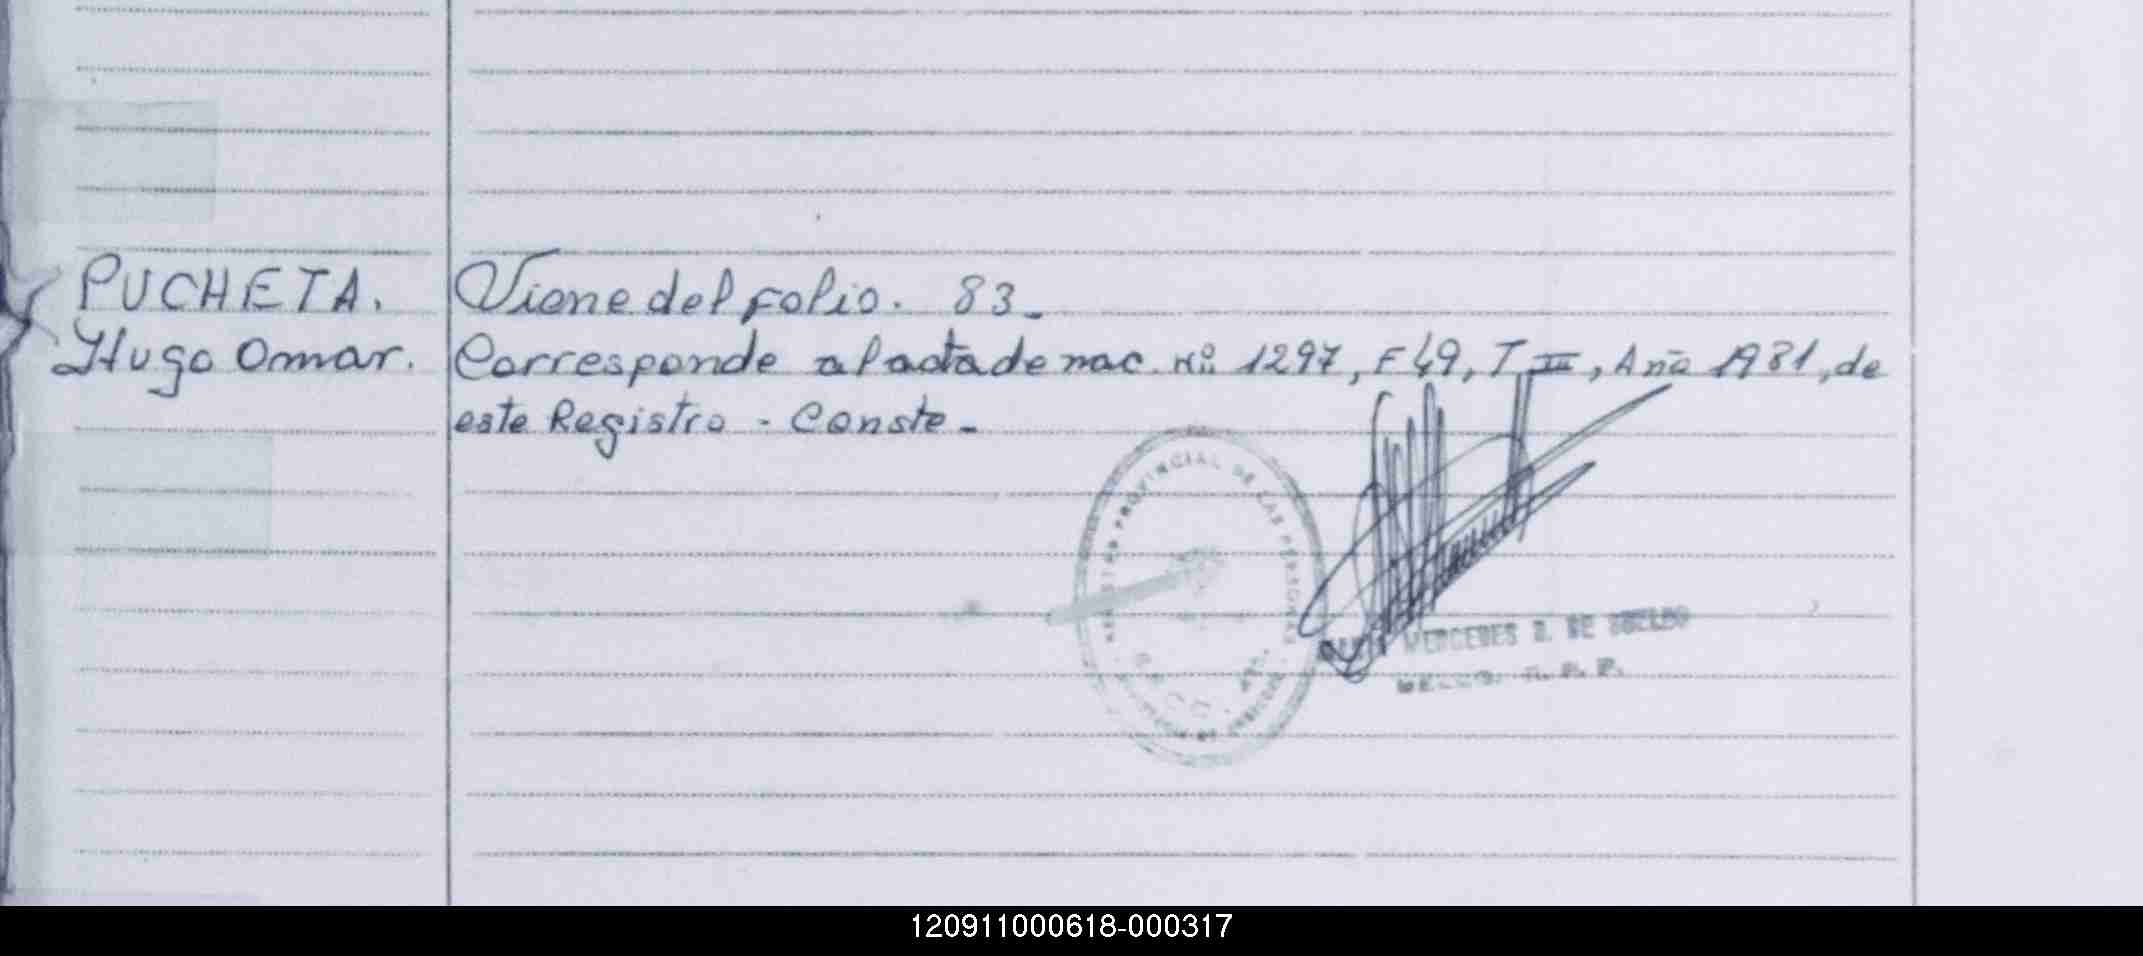 PUCHETA.
Hugo Omar.
Viene del folio. 83_
Corresponde al acta de nac. Nº 1297, F 49, T III, Año 1981, de
este Registro - Conste_
PROVINCIAL DE LAS PERSONAS
MERCEDES D. DE
120911000618-000317